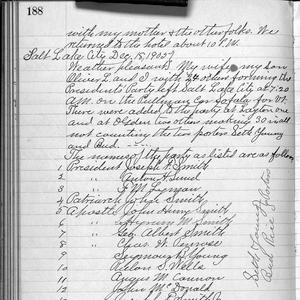 188
with my mother & the other folks. We
returned to the hotel about 10 P.M.
Salt Lake City Dec. 18, 1905
Weather pleasant. My wife, my son
Oliver L. and I with 26 others forming the
Presidents Party left Salt Lake City at 7.20
A.M. on the Pullman Car
There were added to the party at Layton one
and at Ogden two others making 30 in all
not counting the two porters Seth Young
and Bud
The names of the party as listed are as follows
1 President Joseph F. Smith
2 " Anthon H. Lund
3 " F. M. Lyman
4 Patriarch John Smith
5 Apostle John Henry Smith
6 " Hyrum M. Smith
7 " Geo. Albert Smith
8 " Chas. W. Penrose
9 Seymour B. Young
10 Rulon S. Wells
11 Angus M. Cannon
12 John McDonald
Seth Young
Bud
Porters